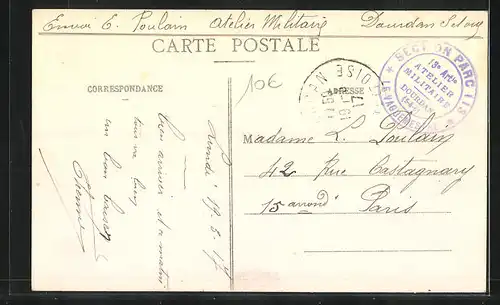 Envoi E. Poulain Atelier Militaire Dourdan
CARTE POSTALE
CORRESPONDANCE
ADRESSE
10€
SECTION PARC
13e Artie
ATELIER
MILITAIRE
DOURDAN
OISE
17
Lundi 17.5.17
bien arrivé et ce matin
un bon baiser
Etienne
Madame L. Poulain
42 Rue Castagnary
15 arrondt
Paris